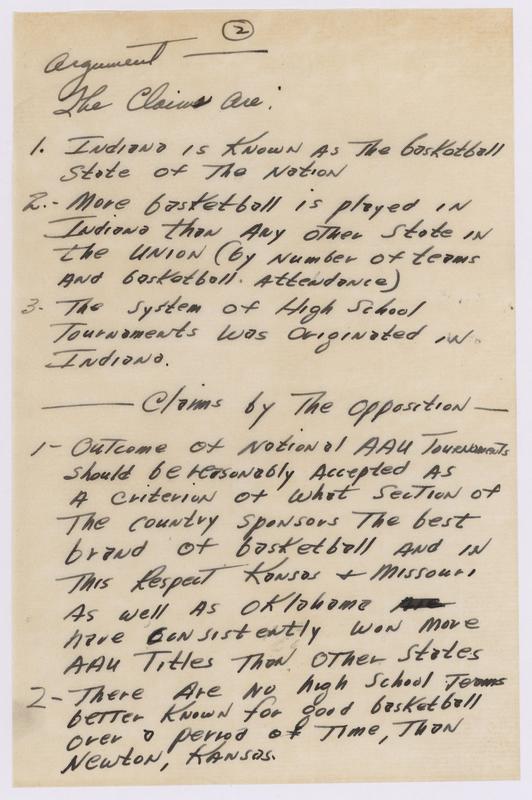 2
Argument
The Claims Are:
1. Indiana is Known As The basketball
State of The Nation
2.- More basketball is played in
Indiana than Any other State in
the Union (by number of teams
And basketball. Attendance)
3- The System of High School
Tournaments was Originated in
Indiana.
Claims by The opposition
1- Outcome of National AAU Tournaments
should be reasonably Accepted As
A criterion of what Section of
The country sponsors The best
brand of basketball And in
This Respect Kansas + Missouri
As well As Oklahoma
have consistently won more
AAU Titles Than Other States
2- There Are No high School Teams
better Known for good basketball
over a period of Time, Than
Newton, Kansas.